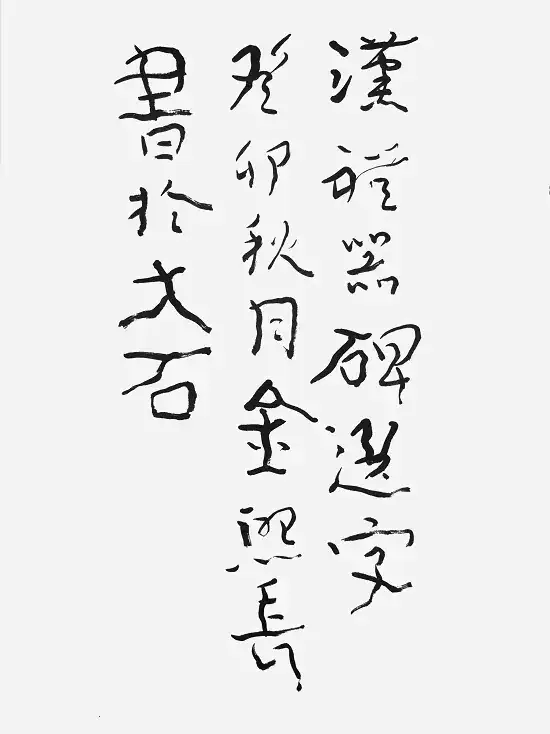 漢禮器碑選字
癸卯秋月金熙長
書於大石